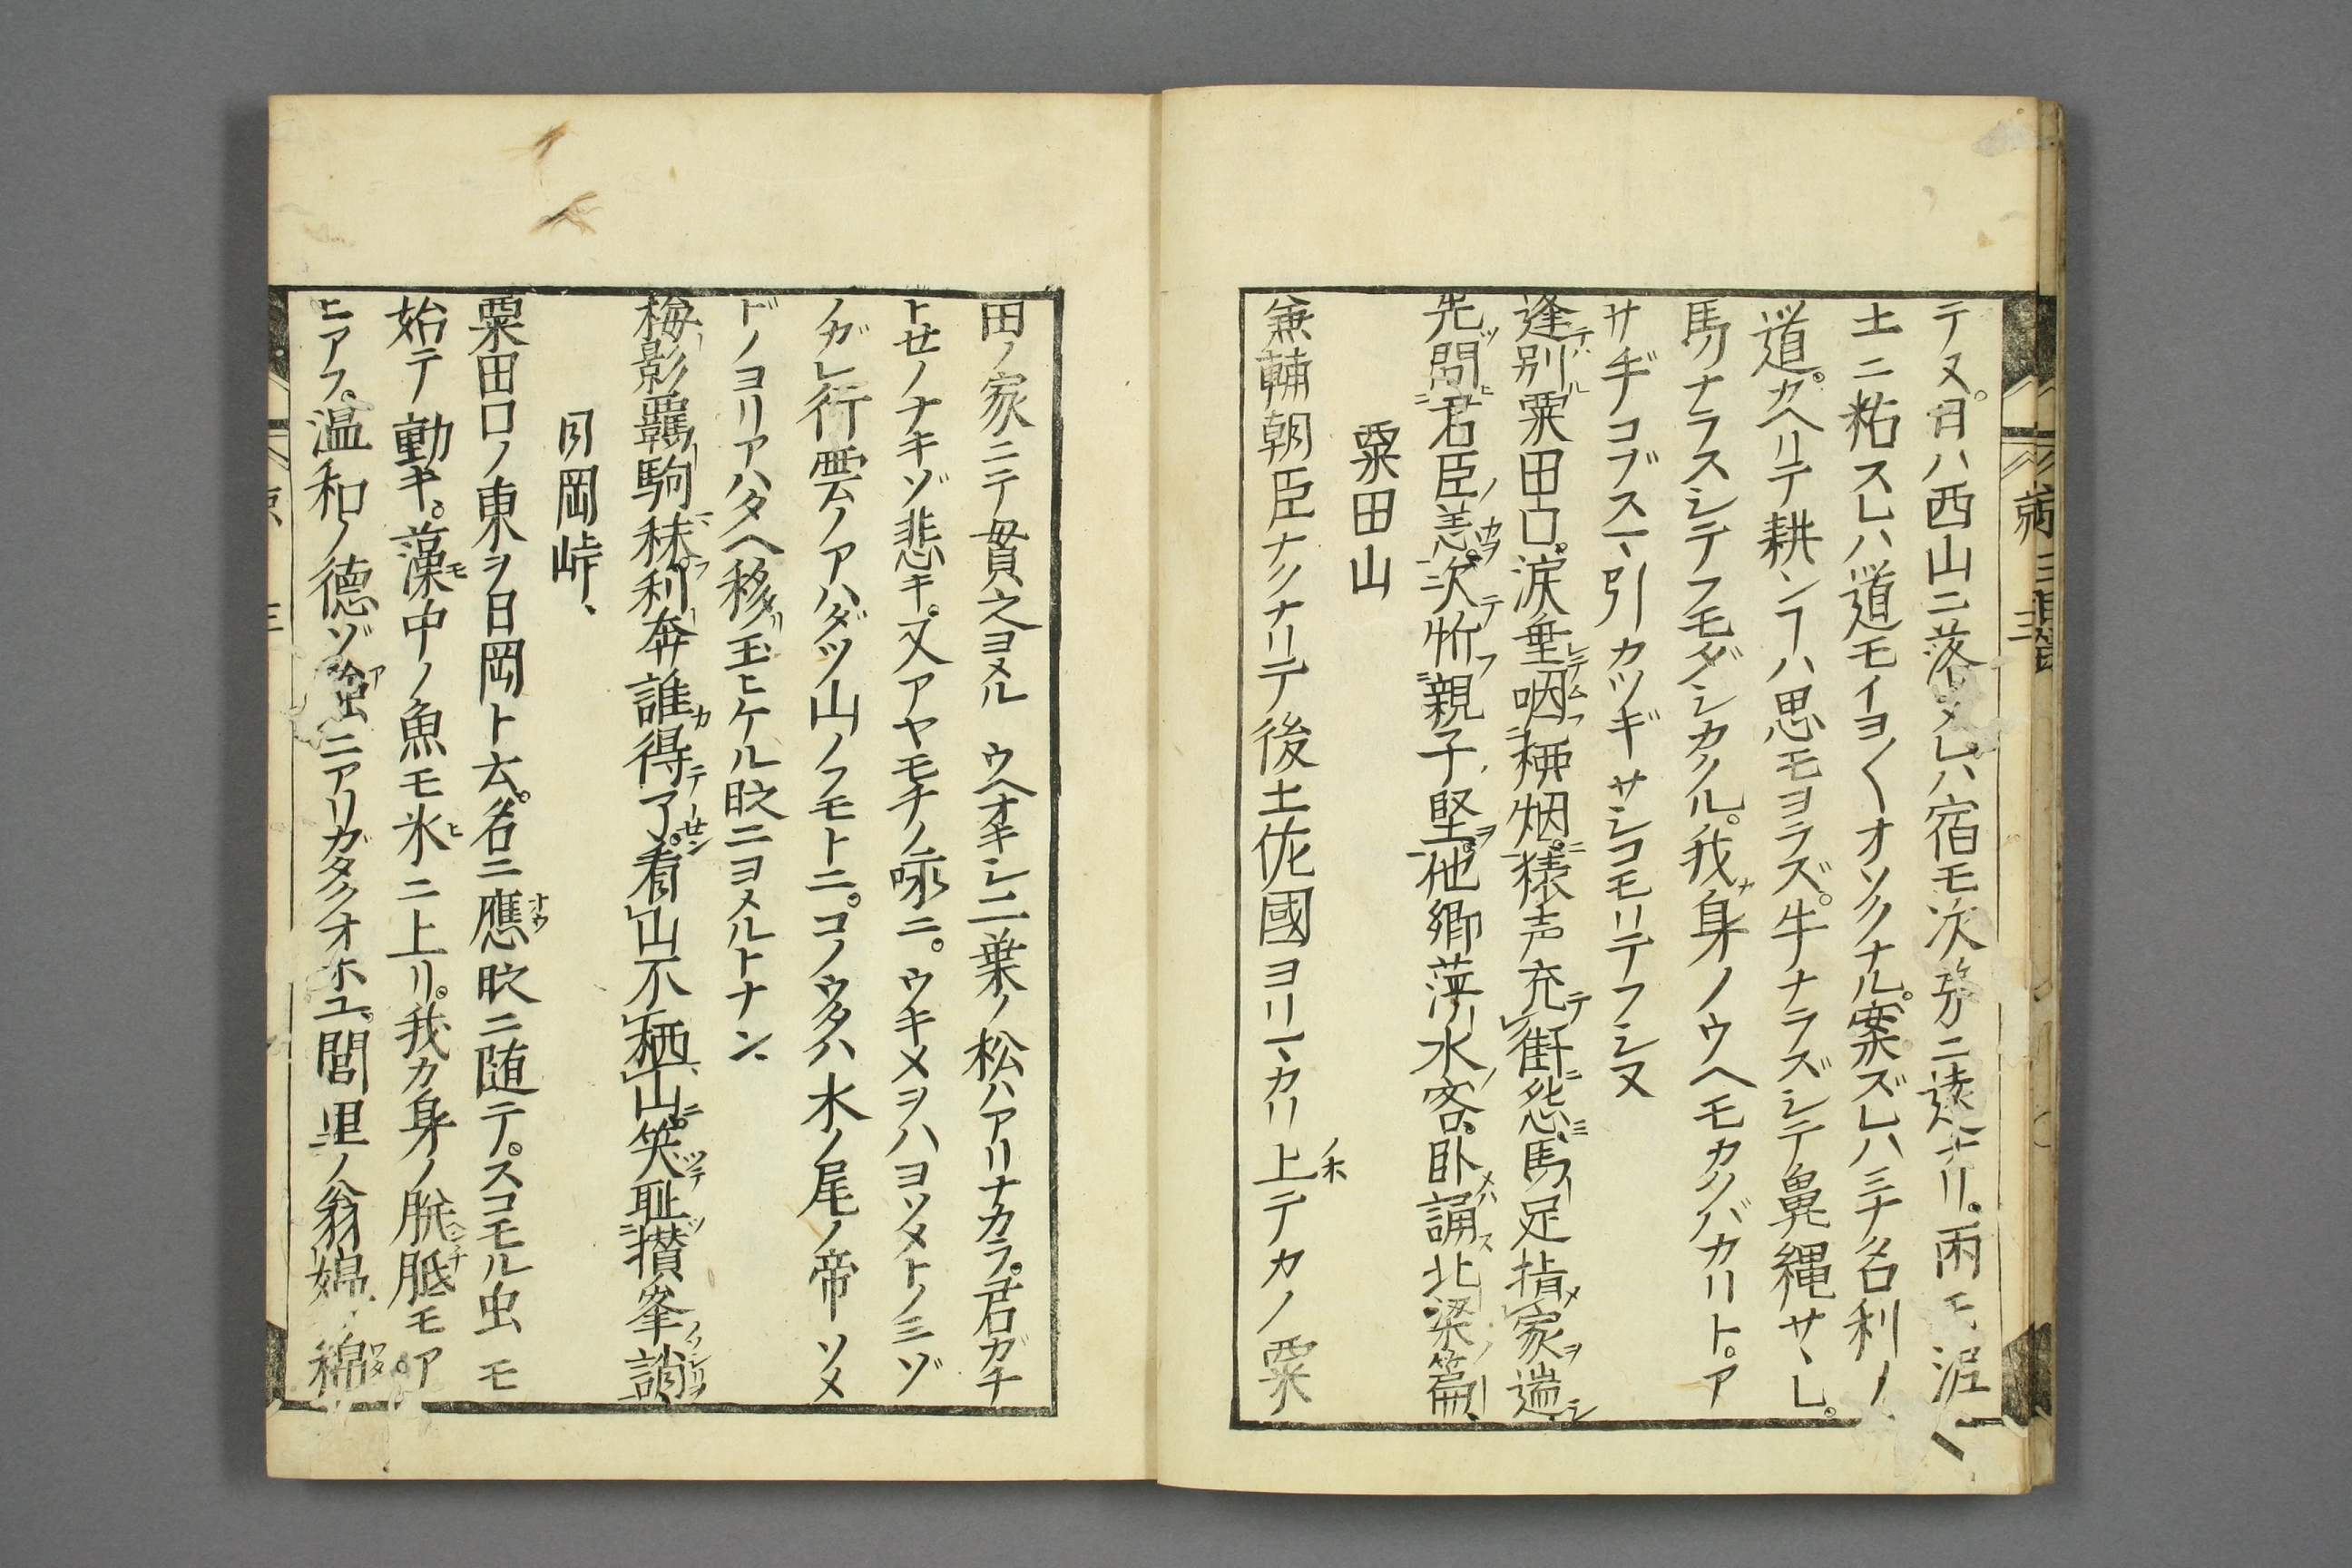 テヌ。日ハ西山ニ落メレハ宿モ次㐧ニ遠ナリ。雨モ泥
土ニ粘スレハ道モイヨ〱オソクナル。案ズレハミナ名利ノ
道。カヘリテ耕ンヿハ思モヨラズ。牛ナラズシテ鼻縄サヽレ。
馬ナラスシテフモダシカクル。我身ノウヘモカクバカリト。ア
サヂコブスマ、引カツギサシコモリテフシヌ
逢別粟田口。涙垂咽柳烟。猿声充街怨。馬足指家遄。
先問君臣恙。次竹親子堅。他郷萍水客。臥誦北梁篇、
粟田山
兼輔朝臣ナクナリテ後土佐國ヨリマカリ上テカノ粟
田ノ家ニテ貫之ヨメル ウヘオキシ二葉ノ松ハアリナカラ。君ガチ
トセノナキゾ悲キ。又アヤモチノ詠ニ。ウキメヲハヨソメトノミゾ
ノガレ行雲ノアハダツ山ノフモトニ。コノウタハ水ノ尾ノ帝ソメ
ドノヨリアハタヘ移玉ヒケル時ニヨメルトナン、
梅影羈駒秣。利奔誰得了。看山不栖山。笑耻攢峯誚、
日岡峠、
粟田口ノ東ヲ日岡ト云。名ニ應時ニ随テ。スコモル虫モ
始テ動キ。藻中ノ魚モ氷ニ上リ。我カ身ノ胼胝モア
ヒアフ。温和ノ德ゾニアリガタクオホユ。閭里ノ翁媼